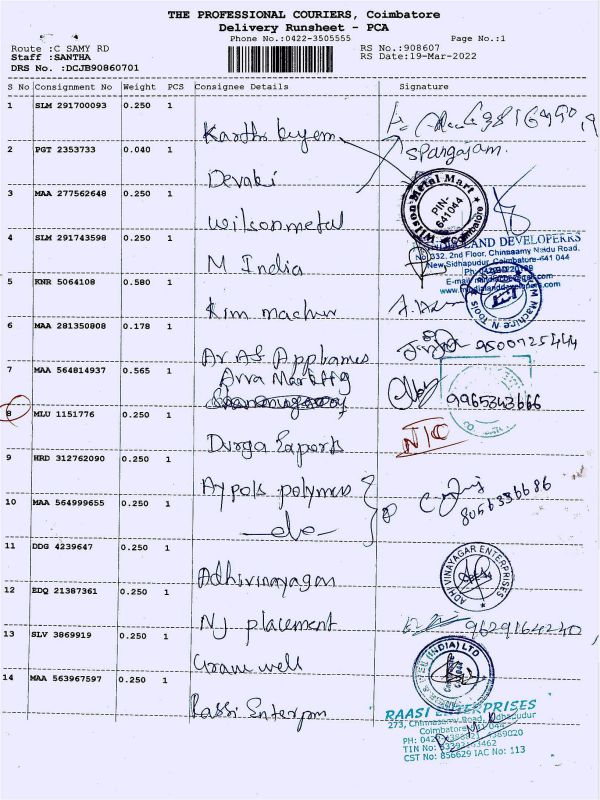 THE PROFESSIONAL COURIERS, Coimbatore
Delivery Runsheet - PCA
Phone No.:0422-3505555 Page No.:1
Route :C SAMY RD RS No.:908607
Staff :SANTHA RS Date:19-Mar-2022
DRS No. :DCJB90860701
S No Consignment No Weight PCS Consignee Details Signature
1 SLM 291700093 0.250 1
Karthi
2 PGT 2353733 0.040 1 Spangajam.
Devaki
3 MAA 277562648 0.250 1
Wilson metal
Wilson Metal Mart
PIN-641044
Coimbatore
4 SLM 291743598 0.250 1
M India
LAND DEVELOPERS
No.332, 2nd Floor, Chinnasamy Naidu Road,
New Sidhapudur, Coimbatore-641 044
5 KNR 5064108 0.580 1
Kim machin
6 MAA 281350808 0.178 1
Ar AS 9500125444
7 MAA 564814937 0.565 1
9965343666
8 MLU 1151776 0.250 1
Durga Exports
N/C
9 HRD 312762090 0.250 1
Aypols polymers
8056336686
10 MAA 564999655 0.250 1
-do-
11 DDG 4239647 0.250 1
Adhivinayagar
ADHIVINAYAGAR ENTERPRISES
12 EDQ 21387361 0.250 1
NJ placement
9629164240
13 SLV 3869919 0.250 1
(INDIA) LTD
14 MAA 563967597 0.250 1
RAASI ENTERPRISES
273, Chinnasamy Road, Sidhapudur
CST No: 856629 IAC No: 113